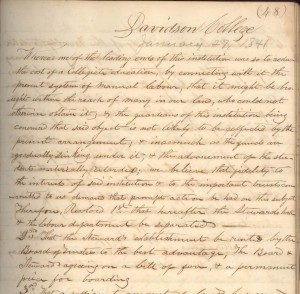 (48)
Davidson College
January 29, 1841
Whereas one of the leading ends of this institution was to reduce
the cost of a Collegiate Education, by connecting with it the
present system of manual labour, that it might be bro-
ught within the reach of many in our land, who could not
obtain it; & the guardians of this institution being
convinced that said object is not likely to be effected by the
present arrangement, & inasmuch as the funds are
gradually sinking under it, & the advancement of the stu-
dents materially retarded, we believe that fidelity to
the interests of said institution & to the important trusts com-
mitted to us demand that prompt action be had on this subject
Therefore, Resolved 1st That hereafter the Stewards hall
& the labour department be separated
2nd That the steward's establishment be rented by the
Board of Trustees to the best advantage, the Board &
Steward agreeing on a bill of fare, & a permanent
price for boarding
3rd That